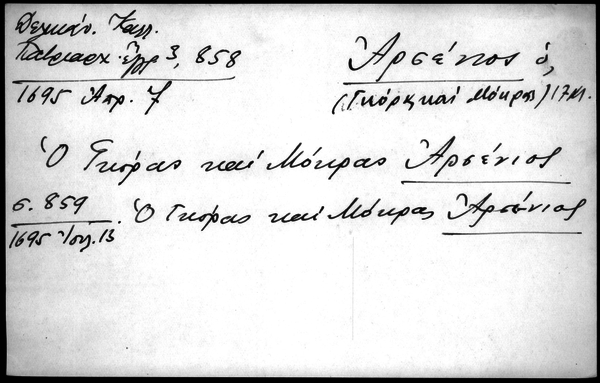 Δελικάν. Καλλ.
Πατριαρχ. Ἔγγρ 3, 858
1695 Ἀπρ. 7
Ἀρσένιος ὁ,
(Γκόρας καὶ Μόκρας) 17 αἰ.
Ὁ Γκόρας καὶ Μόκρας Ἀρσένιος
σ. 859
1695 Ἰουλ. 13
Ὁ Γκόρας καὶ Μόκρας Ἀρσένιος